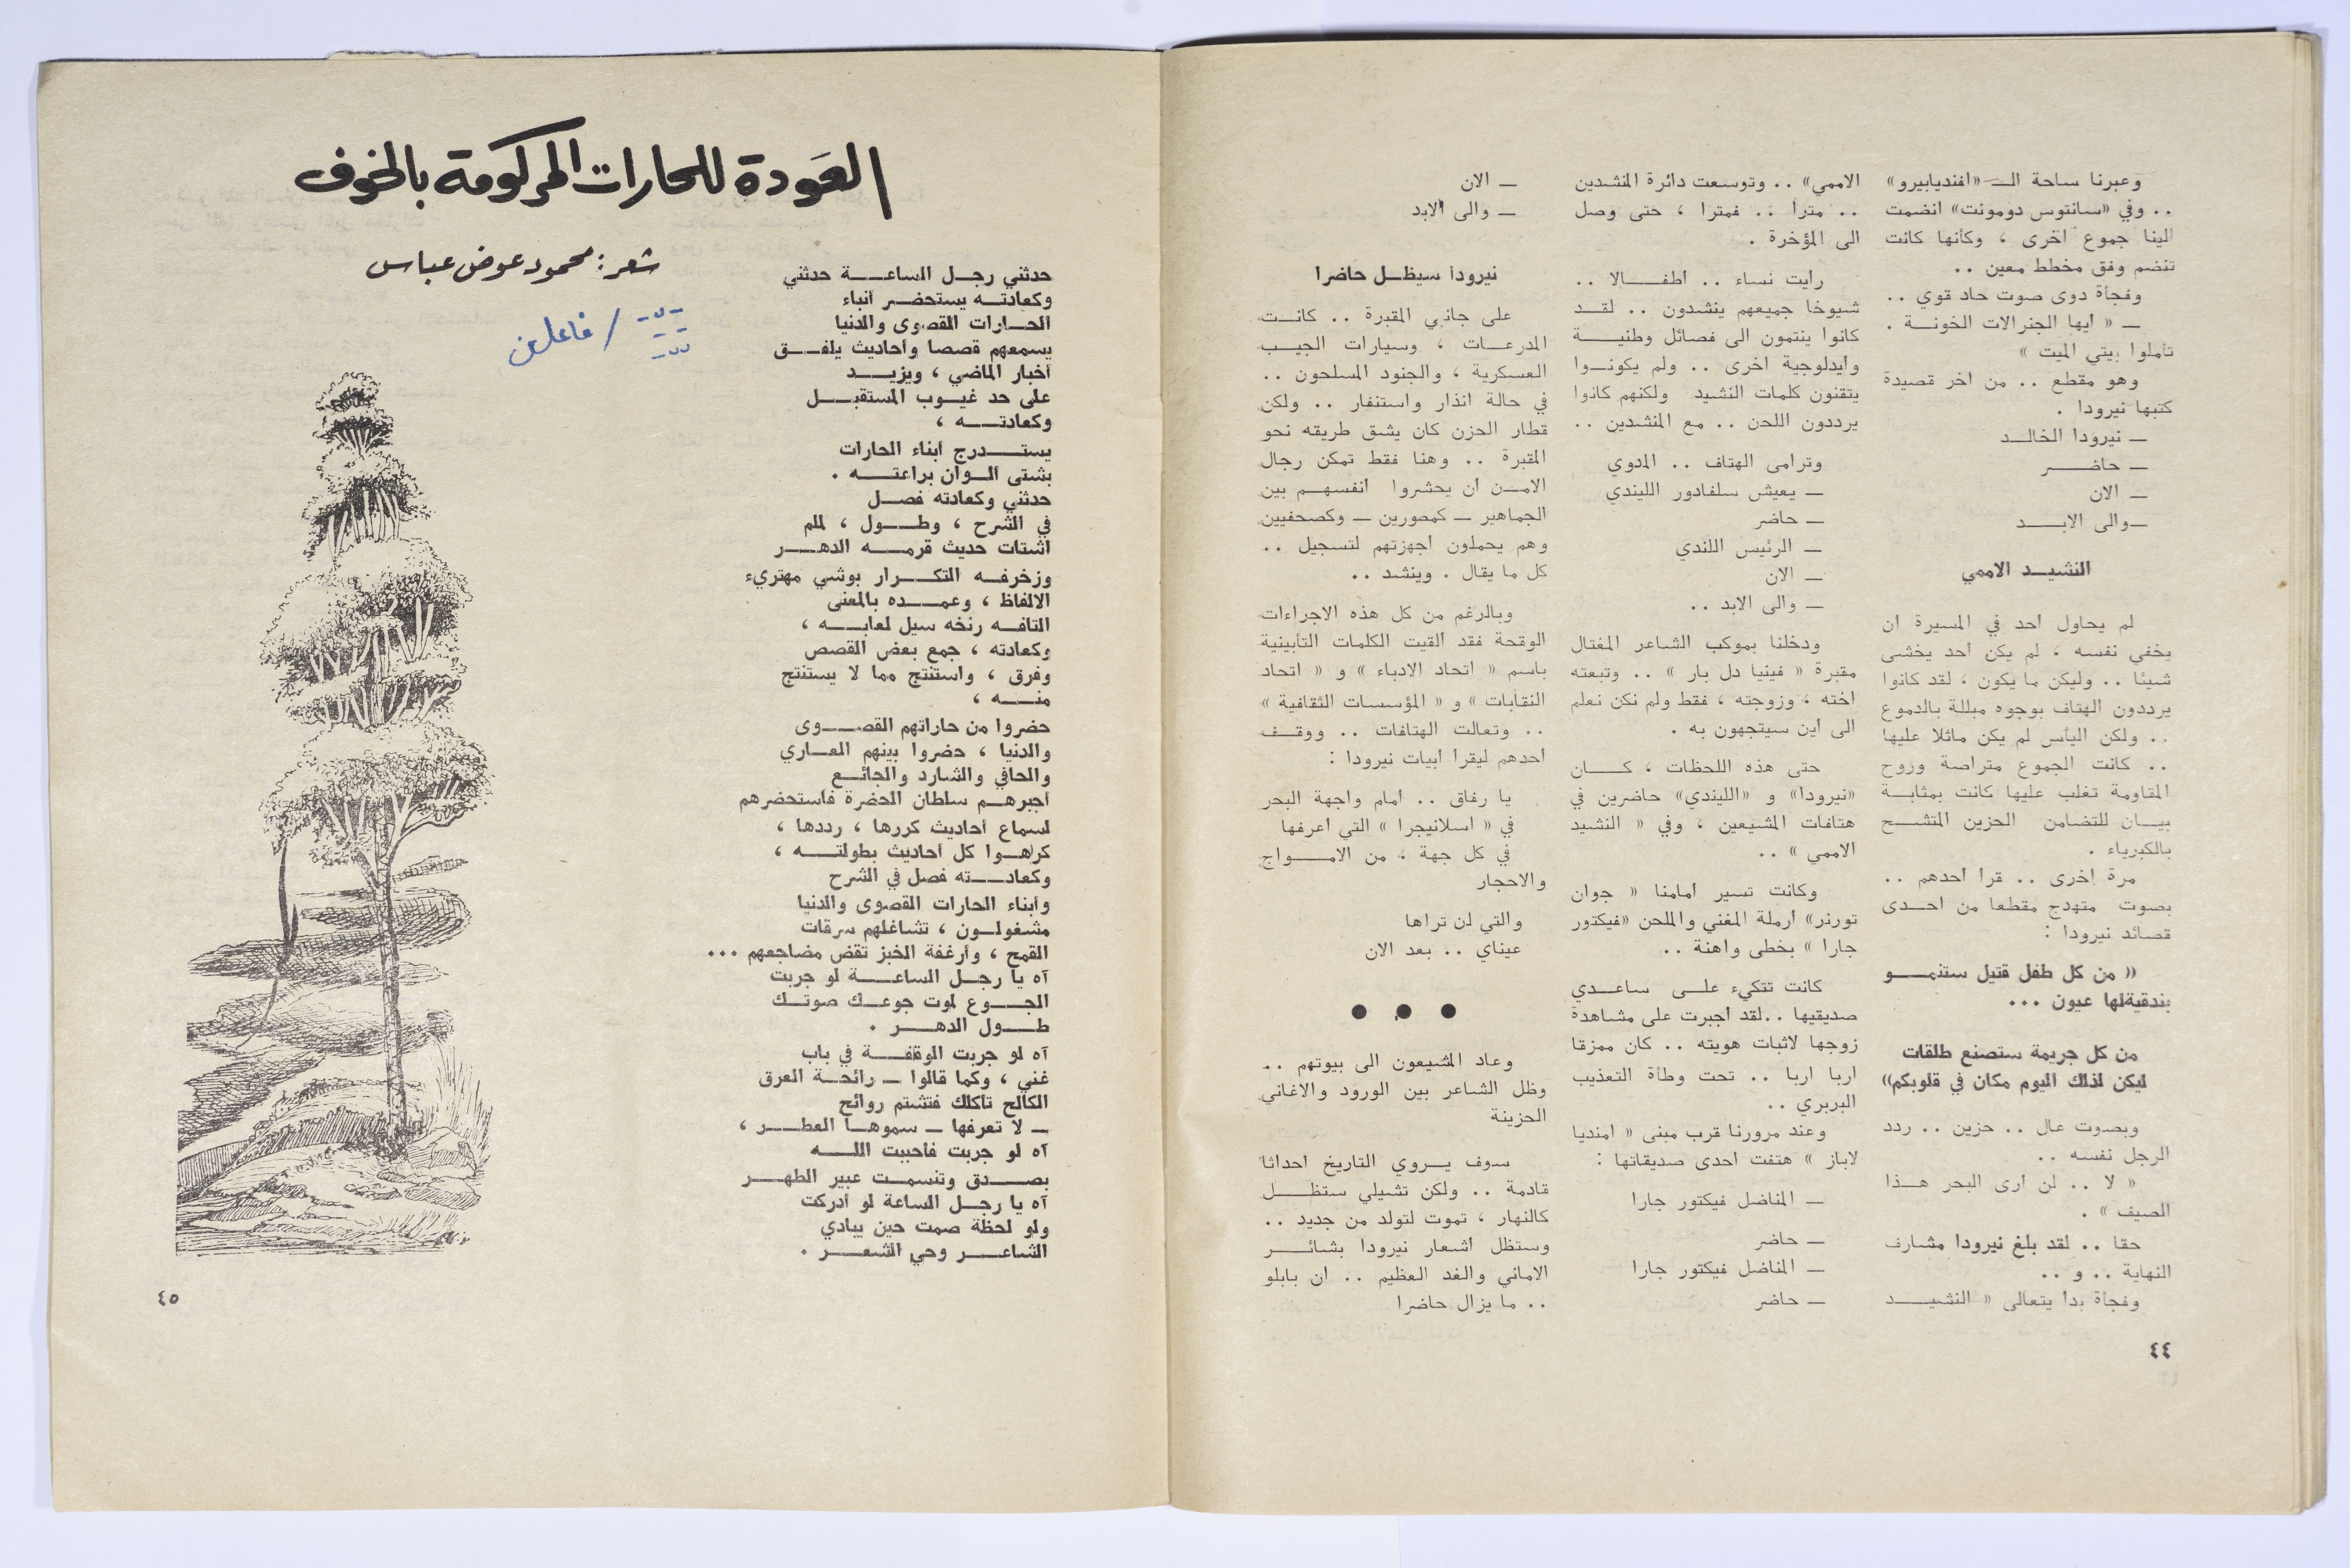 وعبرنا ساحة الـ «افنديابيرو»
.. وفي «سانتوس دومونت» انضمت
الينا جموع اخرى ، وكأنها كانت
تنضم وفق مخطط معين ..
وفجأة دوى صوت حاد قوي ..
ـ « أيها الجنرالات الخونة .
تأملوا بيتي الميت »
وهو مقطع .. من آخر قصيدة
كتبها نيرودا .
ـ نيرودا الخالد
ـ حاضر
ـ الان
ـ والى الابد
النشيد الاممي
لم يحاول احد في المسيرة ان
يخفي نفسه ، لم يكن أحد يخشى
شيئا .. وليكن ما يكون ، لقد كانوا
يرددون الهتاف بوجوه مبللة بالدموع
.. ولكن اليأس لم يكن ماثلا عليها
.. كانت الجموع متراصة وروح
المقاومة تغلب عليها كانت بمثابة
بيان للتضامن الحزين المتشح
بالكبرياء .
مرة اخرى .. قرأ أحدهم ..
بصوت متهدج مقطعا من احدى
قصائد نيرودا :
« من كل طفل قتيل ستنمو
بندقية لها عيون ...
من كل جريمة ستصنع طلقات
ليكن لذلك اليوم مكان في قلوبكم»
وبصوت عال .. حزين .. ردد
الرجل نفسه ..
« لا .. لن أرى البحر هذا
الصيف » .
حقا .. لقد بلغ نيرودا مشارف
النهاية .. و ..
وفجأة بدأ يتعالى « النشيد
الاممي» .. وتوسعت دائرة المنشدين
.. مترا .. فمترا ، حتى وصل
الى المؤخرة .
رأيت نساء .. أطفالا ..
شيوخا جميعهم ينشدون .. لقد
كانوا ينتمون الى فصائل وطنية
وايدلوجية أخرى .. ولم يكونوا
يتقنون كلمات النشيد ولكنهم كانوا
يرددون اللحن .. مع المنشدين ..
وترامى الهتاف .. المدوي
ـ يعيش سلفادور الليندي
ـ حاضر
ـ الرئيس اللندي
ـ الان
ـ والى الابد ..
ودخلنا بموكب الشاعر المغتال
مقبرة « فينيا دل بار » .. وتبعته
اخته ، وزوجته ، فقط ولم نكن نعلم
الى اين سيتجهون به .
حتى هذه اللحظات ، كان
«نيرودا» و «الليندي» حاضرين في
هتافات المشيعين ، وفي « النشيد
الاممي » ..
وكانت تسير أمامنا « جوان
تورنر» أرملة المغني والملحن «فيكتور
جارا » بخطى واهنة ..
كانت تتكيء على ساعدي
صديقيها ..لقد أجبرت على مشاهدة
زوجها لاثبات هويته .. كان ممزقا
اربا اربا .. تحت وطأة التعذيب
البربري ..
وعند مرورنا قرب مبنى « امنديا
لاباز » هتفت احدى صديقاتها :
ـ المناضل فيكتور جارا
ـ حاضر
ـ المناضل فيكتور جارا
ـ حاضر
ـ الان
ـ والى الابد
نيرودا سيظل حاضرا
على جانبي المقبرة .. كانت
المدرعات ، وسيارات الجيب
العسكرية ، والجنود المسلحون ..
في حالة انذار واستنفار .. ولكن
قطار الحزن كان يشق طريقه نحو
المقبرة .. وهنا فقط تمكن رجال
الامن أن يحشروا أنفسهم بين
الجماهير ـ كمصورين ـ وكصحفيين
وهم يحملون أجهزتهم لتسجيل ..
كل ما يقال . وينشد ..
وبالرغم من كل هذه الاجراءات
الوقحة فقد ألقيت الكلمات التأبينية
باسم « اتحاد الادباء » و « اتحاد
النقابات » و « المؤسسات الثقافية »
.. وتعالت الهتافات .. ووقف
أحدهم ليقرأ أبيات نيرودا :
يا رفاق .. أمام واجهة البحر
في « اسلانيجرا » التي أعرفها
في كل جهة ، من الامواج
والاحجار
والتي لن تراها
عيناي .. بعد الان
● ● ●
وعاد المشيعون الى بيوتهم ..
وظل الشاعر بين الورود والاغاني
الحزينة
سوف يروي التاريخ أحداثا
قادمة .. ولكن تشيلي ستظل
كالنهار ، تموت لتولد من جديد ..
وستظل أشعار نيرودا بشائر
الاماني والغد العظيم .. ان بابلو
.. ما يزال حاضرا
٤٤
العودة للحارات المركومة بالخوف
شعر : محمود عوض عباس
/ فاعلن
حدثني رجل الساعة حدثني
وكعادته يستحضر أنباء
الحارات القصوى والدنيا
يسمعهم قصصا وأحاديث يلفق
أخبار الماضي ، ويزيد
على حد غيوب المستقبل
وكعادته ،
يستدرج أبناء الحارات
بشتى ألوان براعته .
حدثني وكعادته فصل
في الشرح ، وطول ، لملم
أشتات حديث قرمه الدهر
وزخرفه التكرار بوشي مهتريء
الالفاظ ، وعمده بالمعنى
التافه رنخه سيل لعابه ،
وكعادته ، جمع بعض القصص
وفرق ، واستنتج مما لا يستنتج
منه ،
حضروا من حاراتهم القصوى
والدنيا ، حضروا بينهم العاري
والحافي والشارد والجائع
أجبرهم سلطان الحضرة فاستحضرهم
لسماع أحاديث كررها ، رددها ،
كرهوا كل أحاديث بطولته ،
وكعادته فصل في الشرح
وأبناء الحارات القصوى والدنيا
مشغولون ، تشاغلهم سرقات
القمح ، وأرغفة الخبز تقض مضاجعهم ...
آه يا رجل الساعة لو جربت
الجوع لموت جوعك صوتك
طول الدهر .
آه لو جربت الوقفة في باب
غني ، وكما قالوا ـ رائحة العرق
الكالح تأكلك فتشتم روائح
ـ لا تعرفها ـ سموها العطر ،
آه لو جربت فأحببت الله
بصدق وتنسمت عبير الطهر
آه يا رجل الساعة لو أدركت
ولو لحظة صمت حين يبادي
الشاعر وحي الشعر .
٤٥